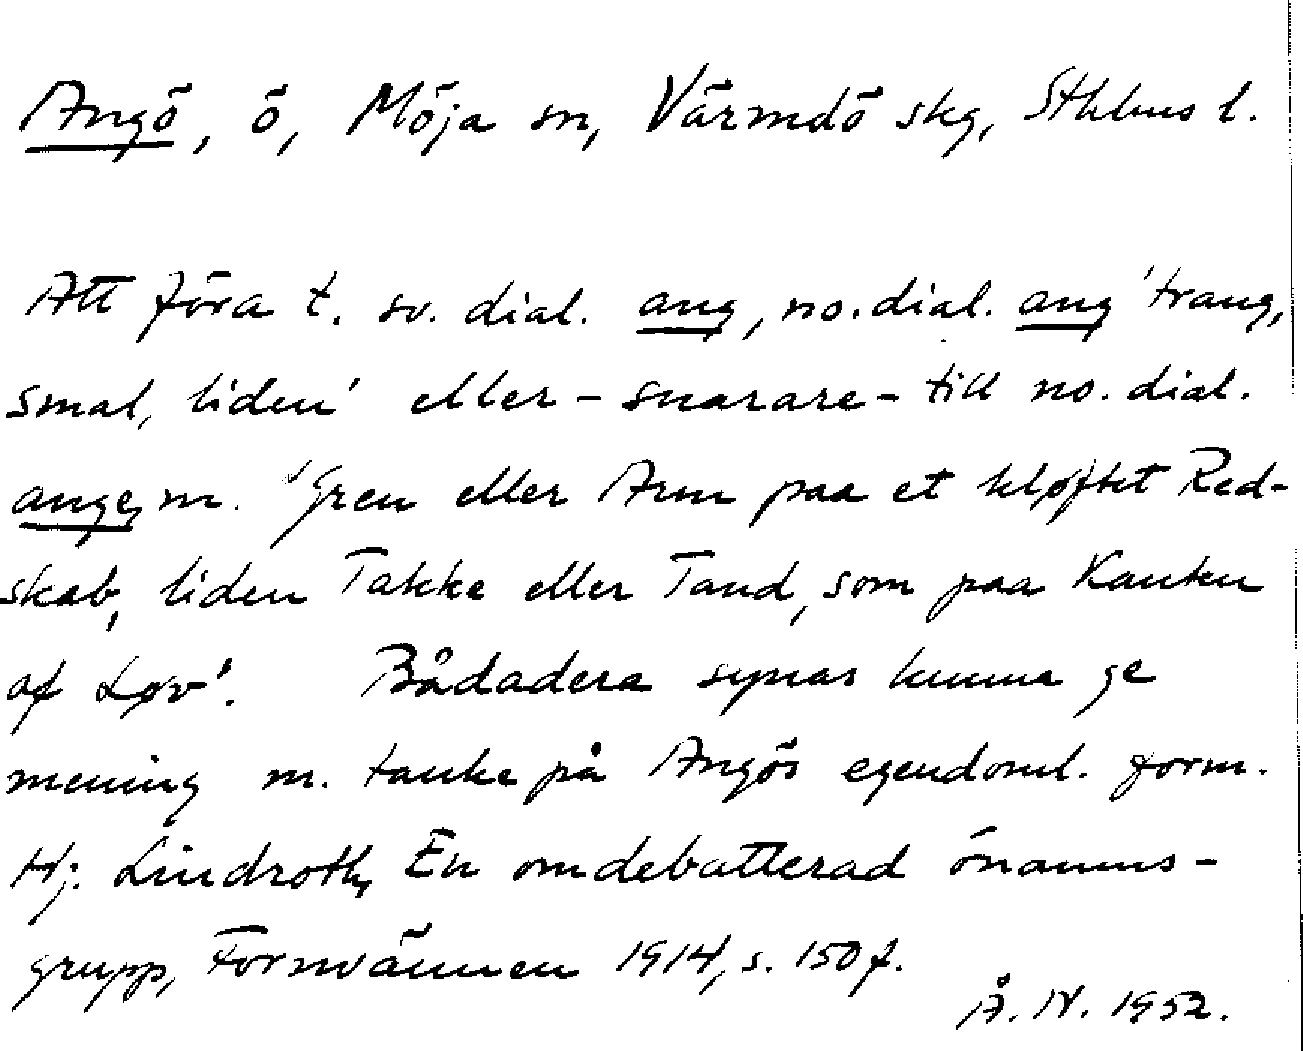 Angö, ö, Möja sn, Värmdö skg, Sthlms l.
Att föra t. sv. dial. ang, no. dial. ang 'trang,
smal, liden' eller – snarare – till no. dial.
ange, m. 'Gren eller Arm paa et kløftet Red-
skab, liden Takke eller Tand, som paa Kanten
af Løv'. Bådadera synas kunna ge
mening m. tanke på Angös egendoml. form.
Hj. Lindroth, En omdebatterad önamns-
grupp, Fornvännen 1914, s. 150 f.
Å. N. 1952.